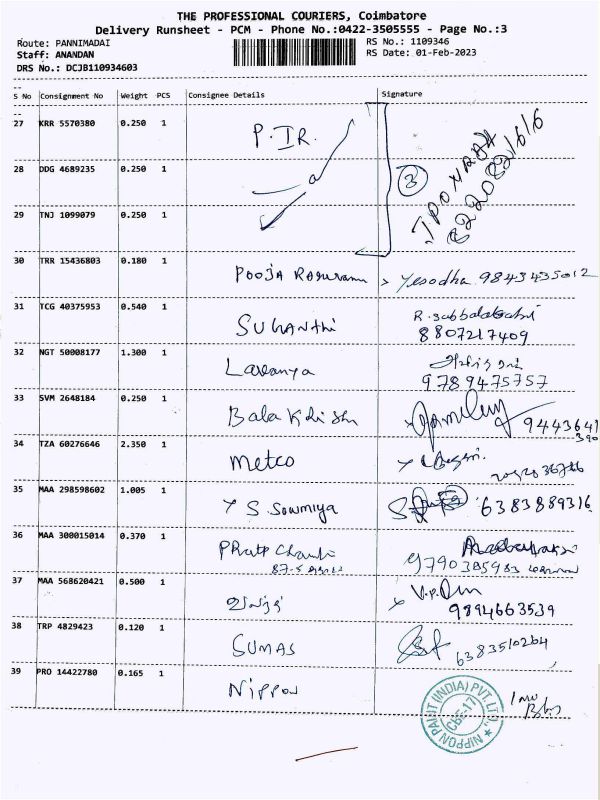 THE PROFESSIONAL COURIERS, Coimbatore
Delivery Runsheet - PCM - Phone No.:0422-3505555 - Page No.:3
Route: PANNIMADAI
RS No.: 1109346
Staff: ANANDAN
RS Date: 01-Feb-2023
DRS No.: DCJB110934603
S No Consignment No Weight PCS Consignee Details Signature
27 KRR 5570380 0.250 1 P. IR.
28 DDG 4689235 0.250 1 3
29 TNJ 1099079 0.250 1
30 TRR 15436803 0.180 1 Pooja Yesodha 9843435012
31 TCG 40375953 0.540 1 SUGANTHI R.
8807217409
32 NGT 50008177 1.300 1 Lavanya
9789475757
33 SVM 2648184 0.250 1 Bala
9443641
390
34 TZA 60276646 2.350 1 Metco
35 MAA 298598602 1.005 1 S. Sowmiya 6383889316
36 MAA 300015014 0.370 1
37 MAA 568620421 0.500 1 V.P.
9894663539
38 TRP 4829423 0.120 1 SUMAS 6383510264
39 PRO 14422780 0.165 1 Nippon
NIPPON PAINT (INDIA) PVT LTD.
CBE-17